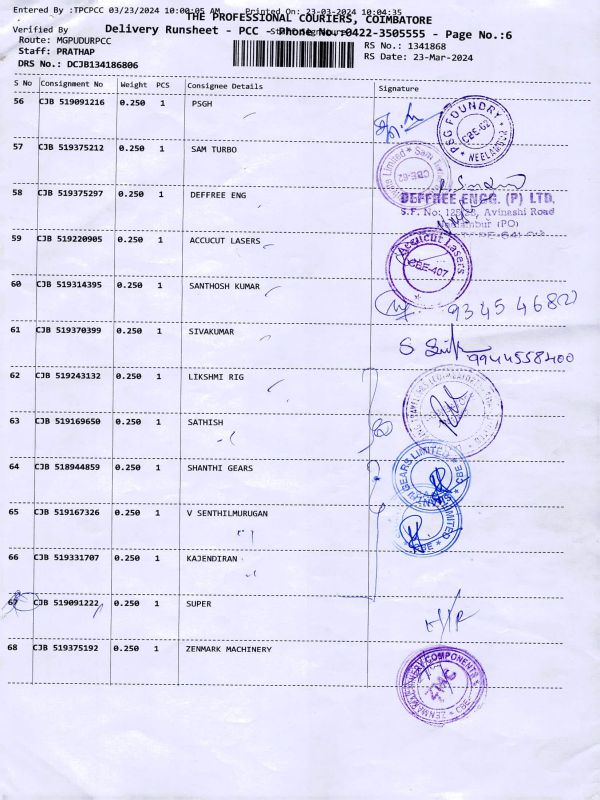 Entered By :TPCPCC 03/23/2024 10:00:05 AM Printed On: 23-03-2024 10:04:35
THE PROFESSIONAL COURIERS, COIMBATORE
Verified By
Delivery Runsheet - PCC - Phone No :0422-3505555 - Page No.:6
Route: MGPUDURPCC
RS No.: 1341868
Staff: PRATHAP
RS Date: 23-Mar-2024
DRS No.: DCJB134186806
S No Consignment No Weight PCS Consignee Details Signature
56 CJB 519091216 0.250 1 PSGH
PSG FOUNDRY
CBE-62
NEELAMBUR
57 CJB 519375212 0.250 1 SAM TURBO
Limited * Sam
CBE-62
58 CJB 519375297 0.250 1 DEFFREE ENG
DEFFREE ENGG. (P) LTD.
S.F. No: Avinashi Road
(PO)
59 CJB 519220905 0.250 1 ACCUCUT LASERS
Accucut Lasers
CBE-407
60 CJB 519314395 0.250 1 SANTHOSH KUMAR
61 CJB 519370399 0.250 1 SIVAKUMAR
S
9944558400
62 CJB 519243132 0.250 1 LIKSHMI RIG
63 CJB 519169650 0.250 1 SATHISH
64 CJB 518944859 0.250 1 SHANTHI GEARS
GEARS LIMITED
CBE
65 CJB 519167326 0.250 1 V SENTHILMURUGAN
LIMITED
66 CJB 519331707 0.250 1 KAJENDIRAN
67 CJB 519091222 0.250 1 SUPER
68 CJB 519375192 0.250 1 ZENMARK MACHINERY
ZENMARK MACHINERY COMPONENTS
ZMC
CBE